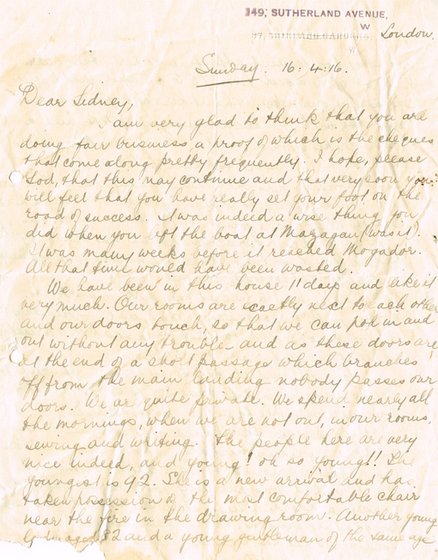 149, SUTHERLAND AVENUE,
W
London.
Sunday. 16.4.16.
Dear Sidney,
I am very glad to think that you are
doing fair business a proof of which is the cheques
that come along pretty frequently. I hope, please
God, that this may continue and that very soon you
will feel that you have really set your foot on the
road of success. It was indeed a wise thing you
did when you left the boat at Mazagan (was it).
It was many weeks before it reached Mogador.
All that time would have been wasted.
We have been in this house 11 days and like it
very much. Our rooms are exactly next to each other
and our doors touch, so that we can pop in and
out without any trouble and as these doors are
at the end of a short passage which branches
off from the main landing nobody passes our
doors. We are quite private. We spend nearly all
the mornings, when we are not out, in our rooms,
sewing and writing. The people here are very
nice indeed, and young! oh so young!! The
youngest is 92. She is a new arrival and has
taken possession of the most comfortable chair
near the fire in the drawing room. Another young
82 and a young gentleman of the same age